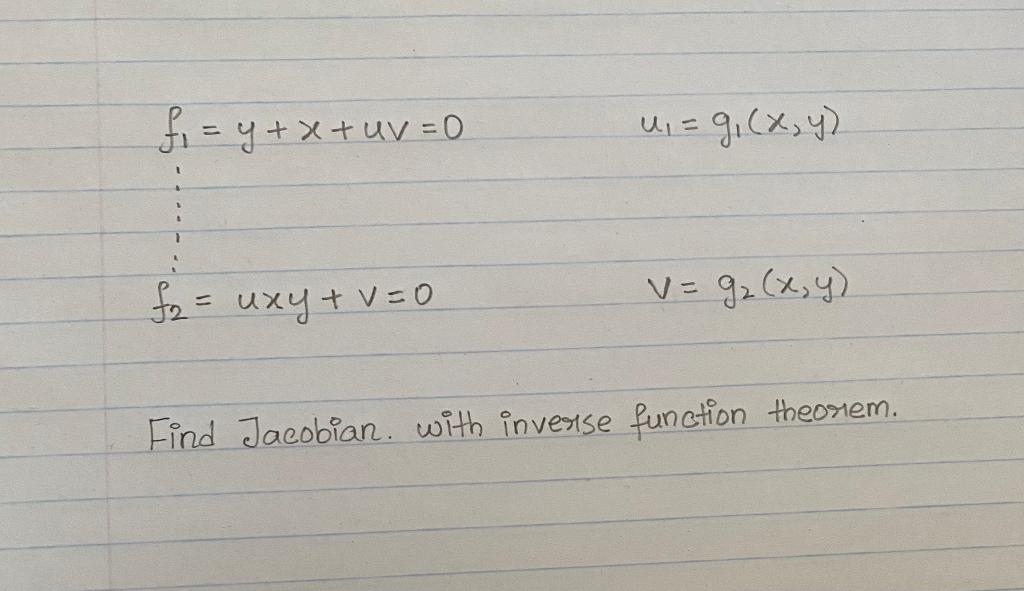 f₁ = y + x + uv = 0 u₁ = g₁(x, y)
f₂ = uxy + v = 0 v = g₂(x, y)
Find Jacobian. with inverse function theorem.